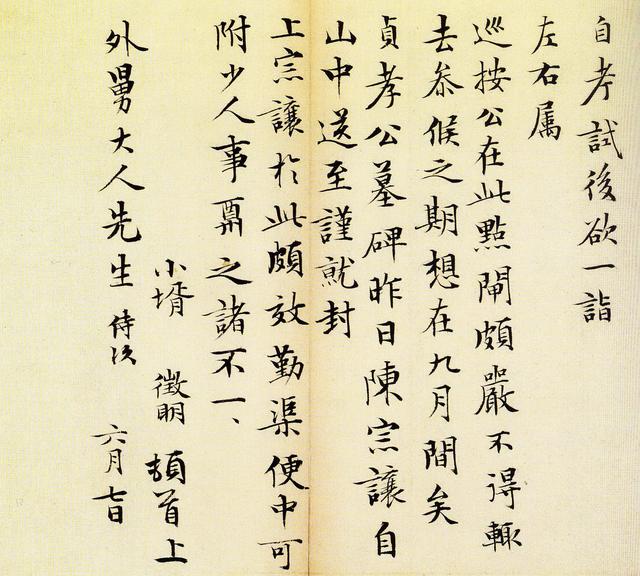 自考試後欲一詣
左右属
巡按公在此點閘頗嚴不得輒
去叅候之期想在九月間矣
貞孝公墓碑昨日陳宗讓自
山中送至謹就封
上宗讓於此頗效勤渠便中可
附少人事酬之諸不一、
小壻 徵明 頓首上
外舅大人先生 侍次
六月七日